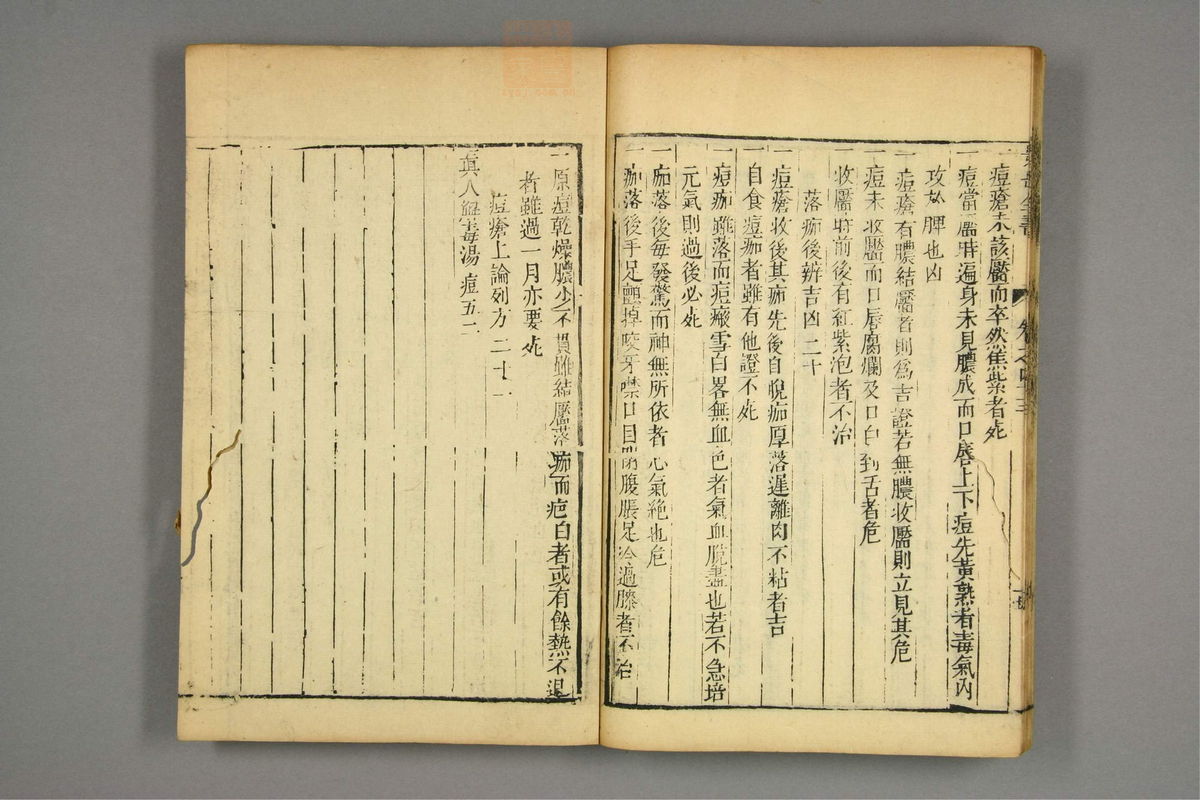 一痘瘡未該靨而卒然焦紫者死
一痘當靨時遍身未見膿成而口唇上下痘先黃熟者毒氣內
攻於脾也凶
一痘瘡有膿結靨者則爲吉證若無膿收靨則立見其危
一痘未收靨而口唇腐爛及口白到舌者危
一收靨時前後有紅紫泡者不治
落痂後辨吉凶二十
一痘瘡收後其痂先後自脫痂厚落遲離肉不粘者吉
一自食痘痂者雖有他證不死
一痘痂雖落而痘瘢雪白畧無血色者氣血脫盡也若不急培
元氣則過後必死
一痂落後每發驚而神無所依者心氣絶也危
一痂落後手足顫掉咬牙噤口目閉腹脹足冷過膝者不治
一原痘乾燥膿少不貫雖結靨落痂而疤白者或有餘熱不退
者雖過一月亦要死
痘瘡上論列方二十一
真人解毒湯 痘五二